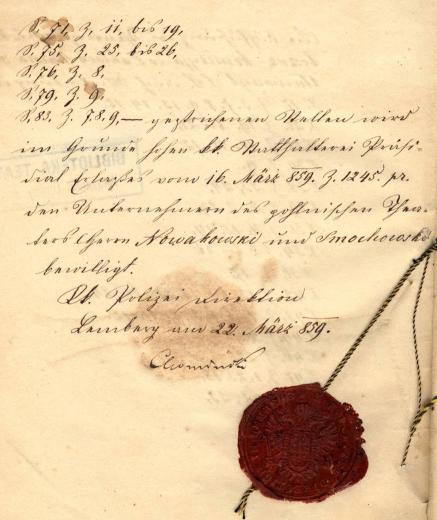 S. 71, Z. 11, bis 19,
S. 75, Z. 25, bis 26,
S. 76, Z. 8,
S. 79, Z. 9,
S. 83, Z. 7.8.9, — gestrichenen Stellen wird
im Grunde hohen kk. Statthalterei Präsi-
dial Erlaßes vom 16. März 859. Z. 1245. pr.
den Unternehmern des pohlnischen Thea-
ters Herrn Nowakowski und Smochowski
bewilligt.
kk. Polizei Direktion
Lemberg am 22. März 859.
BIBLIOTEKA